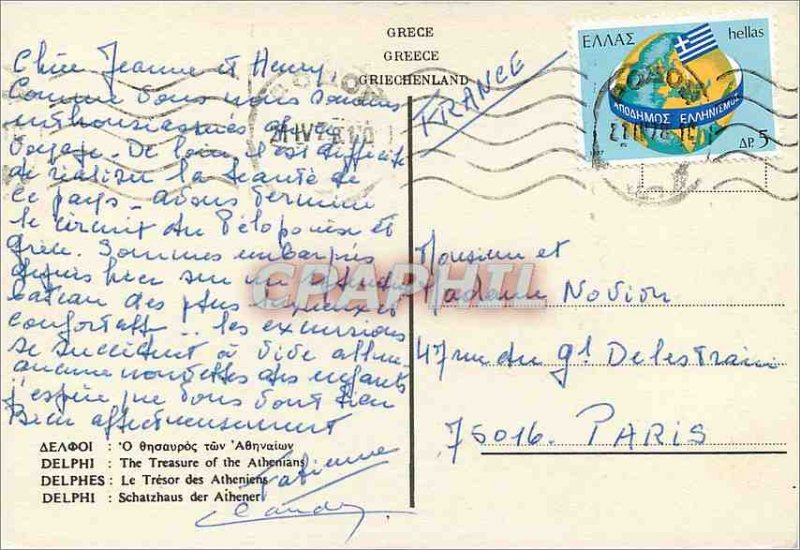 GRECE
GREECE
GRIECHENLAND
FRANCE
ΕΛΛΑΣ hellas
ΑΠΟΔΗΜΟΣ ΕΛΛΗΝΙΣΜΟΣ
1977 ΔΡ. 5
Chère Jeanne et Henry,
Comme vous nous sommes
enthousiasmés de ce
voyage. De loin il est difficile
de réaliser la beauté de
ce pays. avons terminé
le circuit du Péloponèse et
Grèce. Sommes embarqués
depuis hier sur un
bateau des plus luxueux et
confortable.. les excursions
se succèdent à vive allure
aucune nouvelles des enfants
j'espère que vous vont bien
Bien affectueusement
Fabienne
Monsieur et
Madame Novion
47 rue du Gl Delestraint
75016. PARIS
ΔΕΛΦΟΙ : Ὁ θησαυρὸς τῶν Ἀθηναίων
DELPHI : The Treasure of the Athenians
DELPHES : Le Trésor des Atheniens
DELPHI : Schatzhaus der Athener
CRAPHIL